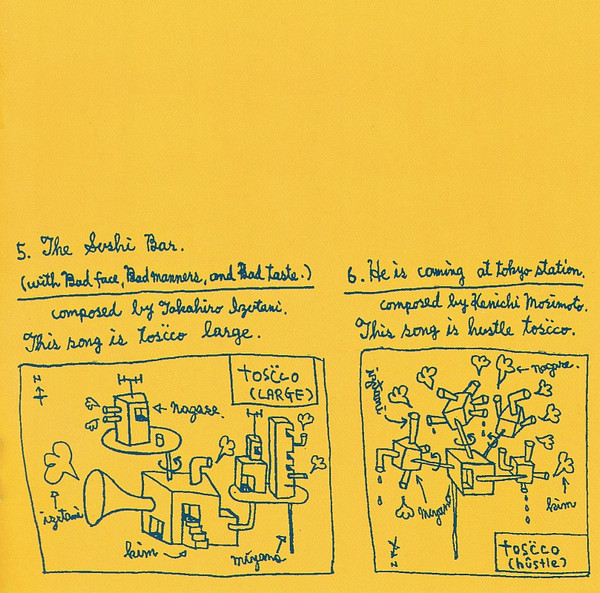 5. The Sushi Bar.
(with Bad face, Bad manners, and Bad taste.)
composed by Takahiro Izutani.
This song is tosc̈co large.
tosc̈co
(LARGE)
nagase.
izutani
kim
miyano
6. He is coming at tokyo station.
composed by Kenichi Morimoto.
This song is hustle tosc̈co.
nagase.
izutani
miyano
kim
tosc̈co
(hûstle)